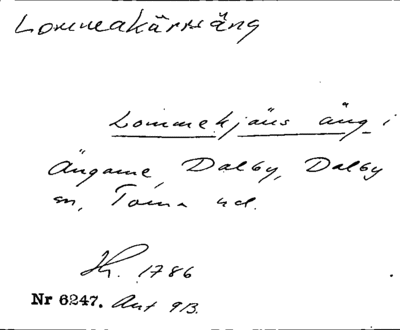 Lommakärrsäng
Lommekjäus äng i
Ängarne, Dalby, Dalby
sn, Torna hd.
Hh. 1786
Nr 6247. Ant 913.